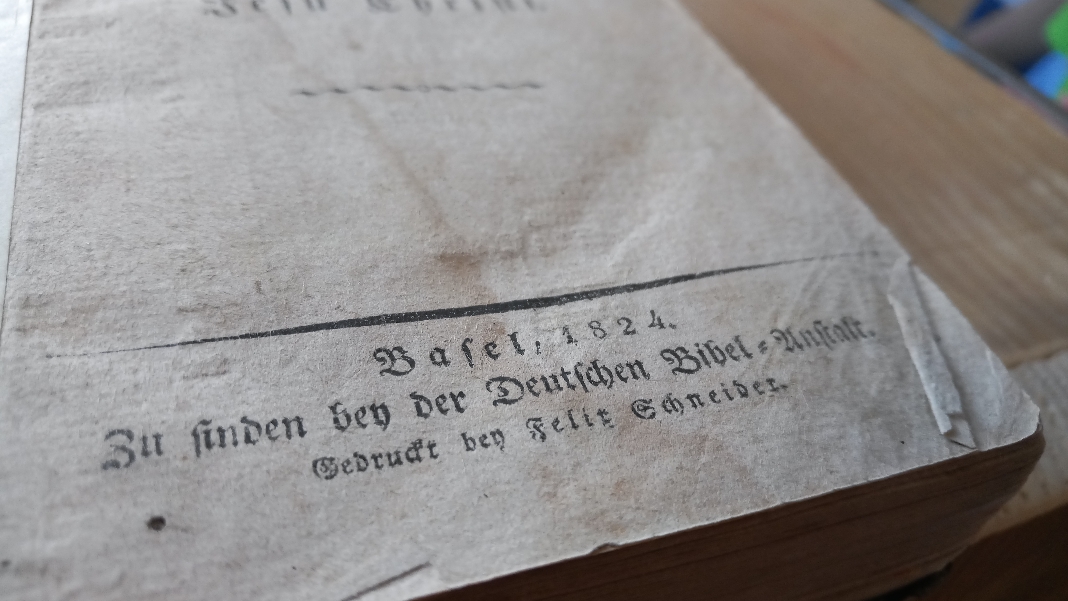 Jesu Christi.
Basel, 1824.
Zu finden bey der Deutschen Bibel-Anstalt.
Gedruckt bey Felix Schneider.